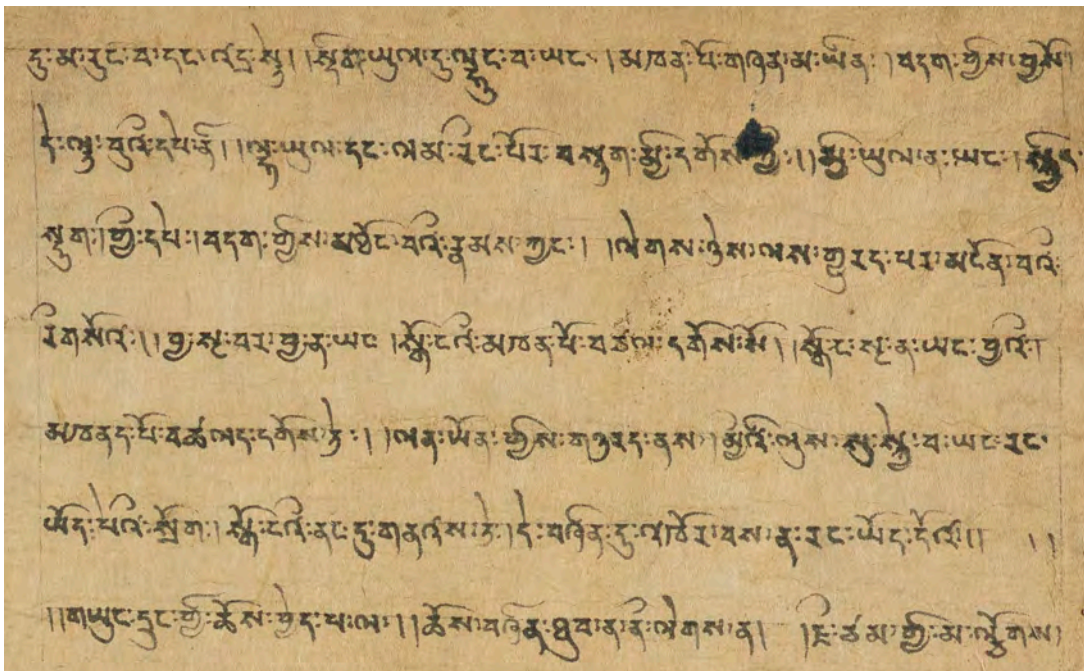 དུ་མ་རུང་བ་དང་འདྲ་སྟེ། །སྡིག་ཡུལ་དུ་ལྟུང་བ་ཡང་། མཁན་པོ་གཞན་མ་ཡིན། །བདག་གྱིས་བྱས།
དེ་ལྟ་བུའི་དཔེ་ནི། །ལྷ་ཡུལ་དང་ལམ་རིང་པོར་བསྟན་མྱི་དགོས་ཀྱི། །མྱི་ཡུལ་ན་ཡང་།
སྡུག་།ཀྱི་དཔེ་།བདག་གྱིས་མཐོང་བའི་རྣམས་ཀྱང་། །ལེགས་ཉེས་ལས་གྱུརད་པར་མངོན་བའི་
རིགསོའི།།བྱ་སྔ་བར་བྱ་ན་ཡང །སྒོ་ངའི་མཁན་པོ་བཙལ་དགོས་སོ། །སྒོ་ང་སྔ་ན་ཡང་བྱའི་།
མཁནད་པོ་བཚལད་དགོས་ཏེ། །ལན་ཡོན་གྱིས་གཉརད་ནས། །མྱིའི་ལུས་སུ་སྐྱེ་བ་ཡང་རང་
ཡོད་པེའི་སྲོག་།སྒོ་ངའི་ནང་དུ་གནའས་ཏེ་།དེ་བཞིན་དུ་འཁོར་བས་ན་རང་ཡོད་དོའོ།། །།
།།གཡུང་དྲུང་གྱི་ཆོས་བྱེད་པ་ལ། །ཆོས་བཞིན་ཐུབ་ན་ནི་ལེགས་ན། །ངེ་ཙམ་གྱི་མི་ལྕོགས།